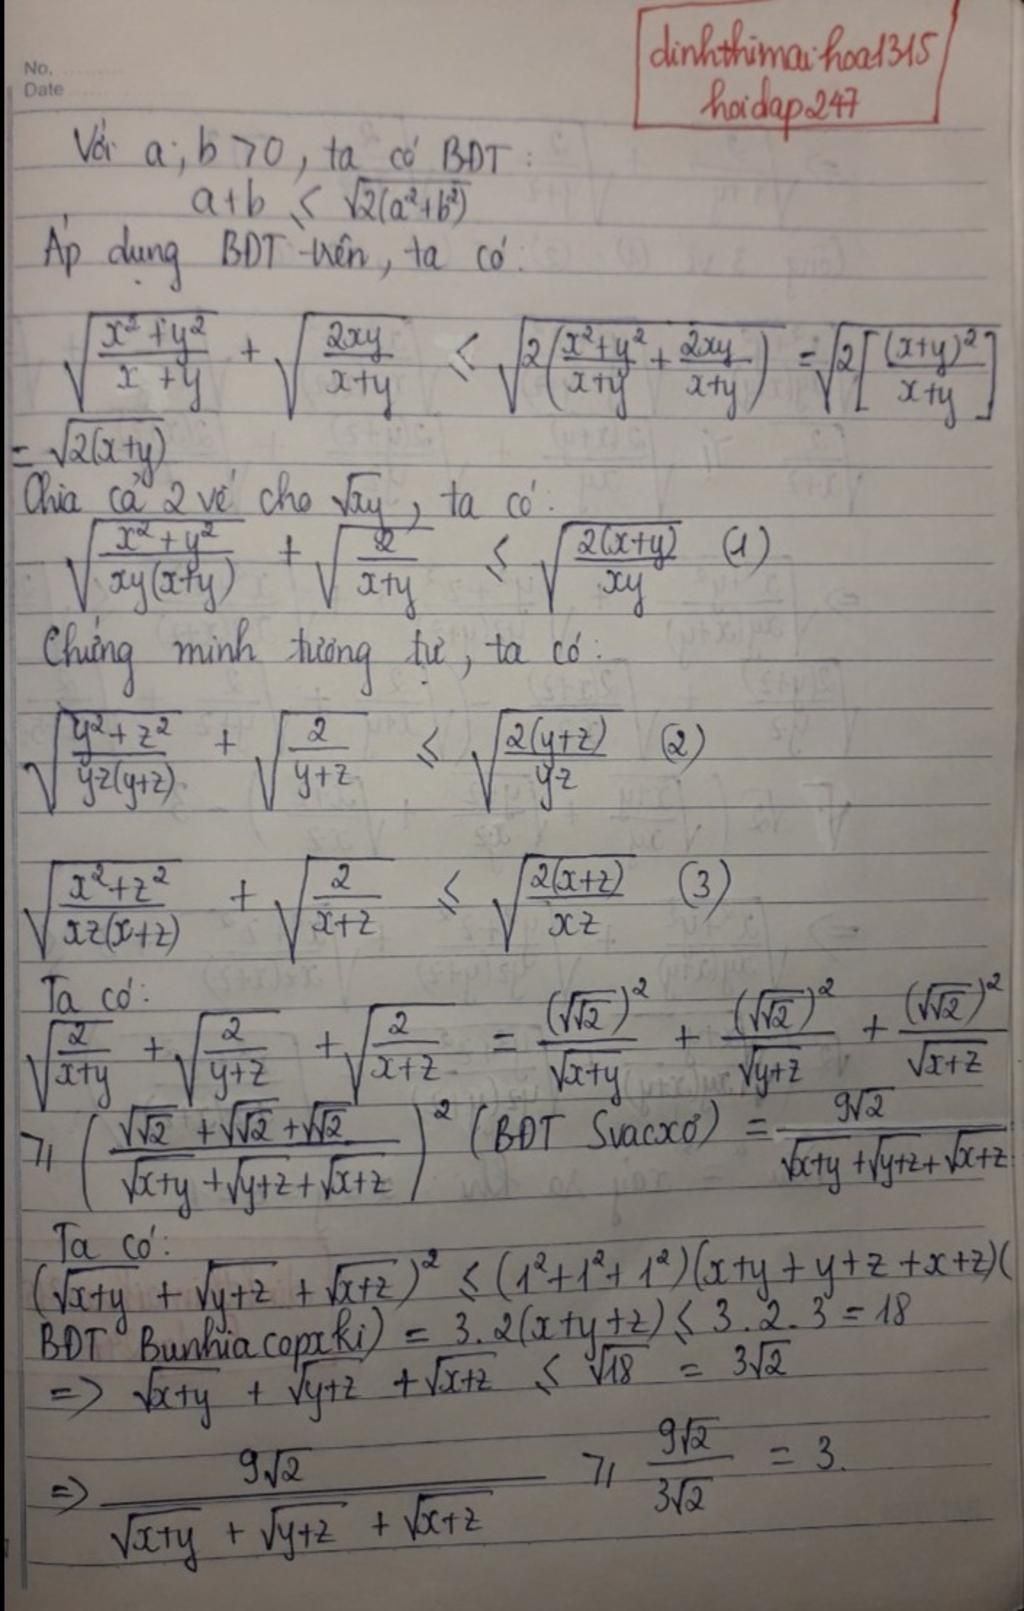 dinhthimaihoa1315
hoidap247
No.
Date
Với a; b > 0, ta có BĐT:
a+b ≤ √(2(a²+b²))
Áp dụng BĐT trên, ta có:
√((x²+y²)/(x+y)) + √(2xy/(x+y)) ≤ √(2((x²+y²)/(x+y) + 2xy/(x+y))) = √(2[(x+y)²/(x+y)])
= √(2(x+y))
Chia cả 2 vế cho √xy, ta có:
√((x²+y²)/(xy(x+y))) + √(2/(x+y)) ≤ √(2(x+y)/xy) (1)
Chứng minh tương tự, ta có:
√((y²+z²)/(yz(y+z))) + √(2/(y+z)) ≤ √(2(y+z)/yz) (2)
√((x²+z²)/(xz(x+z))) + √(2/(x+z)) ≤ √(2(x+z)/xz) (3)
Ta có:
√(2/(x+y)) + √(2/(y+z)) + √(2/(x+z)) = (√√2)²/√(x+y) + (√√2)²/√(y+z) + (√√2)²/√(x+z)
≥ ((√√2 + √√2 + √√2)/(√(x+y) + √(y+z) + √(x+z)))² (BĐT Svacxơ) = 9√2/(√(x+y) + √(y+z) + √(x+z))
Ta có:
(√(x+y) + √(y+z) + √(x+z))² ≤ (1²+1²+1²)(x+y+y+z+x+z)(
BĐT Bunhiacopxki) = 3.2(x+y+z) ≤ 3.2.3 = 18
=> √(x+y) + √(y+z) + √(x+z) ≤ √18 = 3√2
=> 9√2/(√(x+y) + √(y+z) + √(x+z)) ≥ 9√2/3√2 = 3.